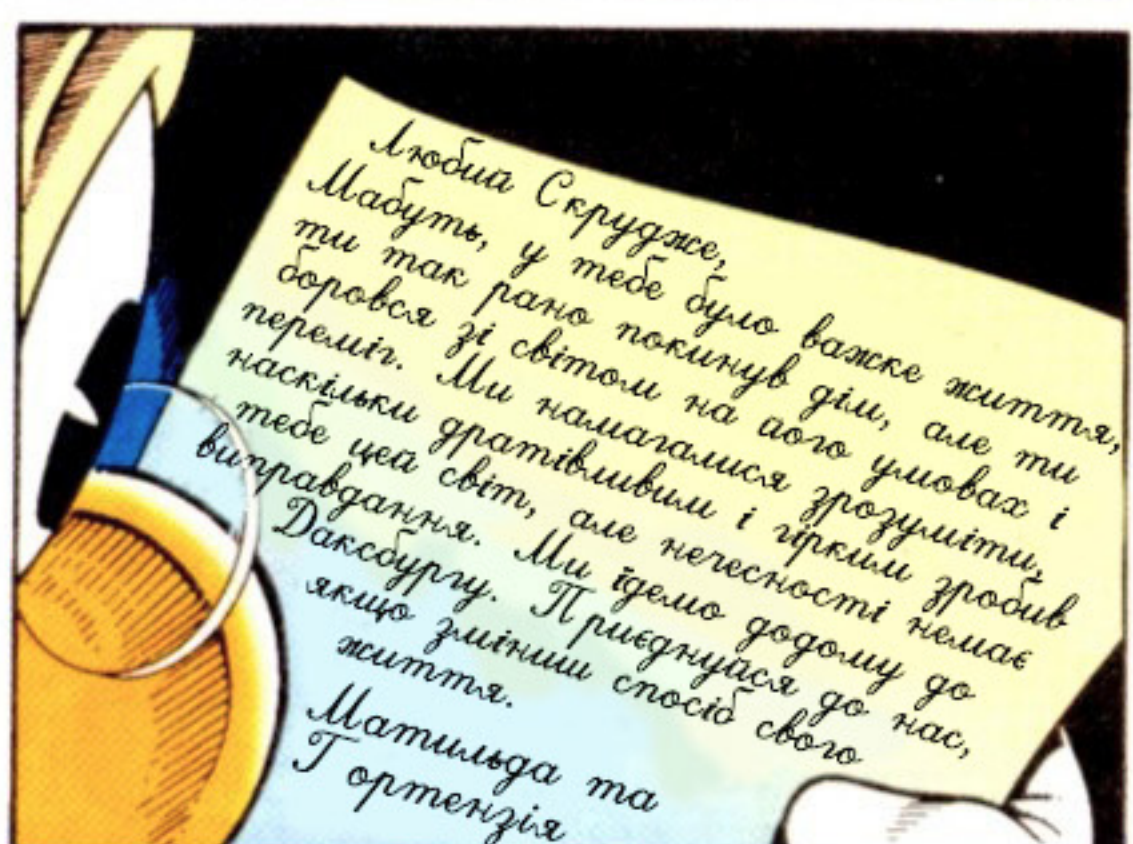 Любий Скрудже,
Мабуть, у тебе було важке життя,
ти так рано покинув дім, але ти
боровся зі світом на його умовах і
переміг. Ми намагалися зрозуміти,
наскільки дратівливим і гірким зробив
тебе цей світ, але нечесності немає
виправдання. Ми їдемо додому до
Даксбургу. Приєднуйся до нас,
якщо зміниш спосіб свого
життя.
Матильда та
Гортензія